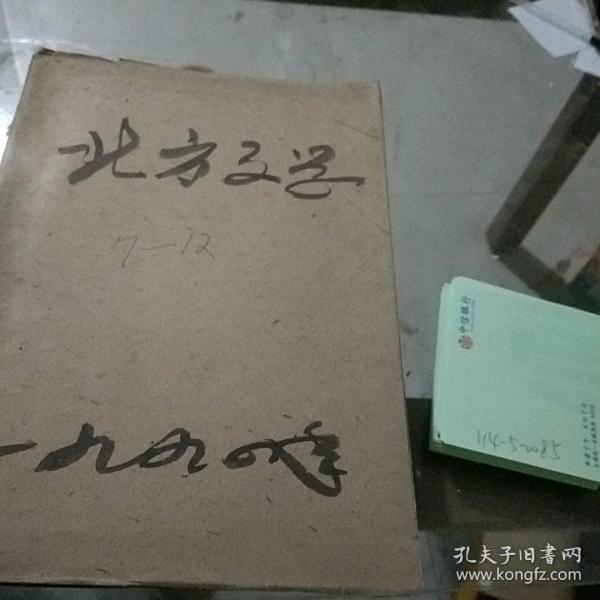 北方文学
7—12
一九九〇年
中信银行
1141-5-2085
孔夫子旧书网
www.kongfz.com